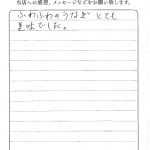 当店への感想、メッセージなどをお願い致します。
ふわふわのうなぎ とても
美味でした。